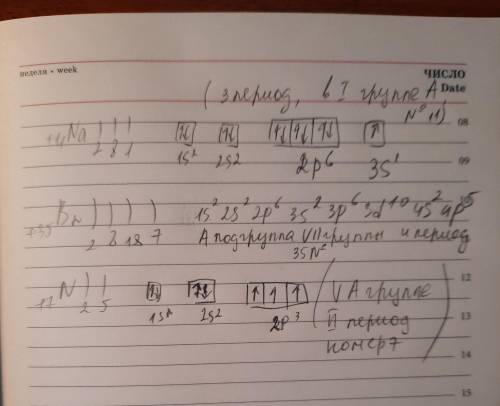 неделя • week
ЧИСЛО
Date
( 3 период, в I группе A,
N° 11)
+11Na ) ) )
2 8 1
↑↓ ↑↓ ↑↓ ↑↓ ↑↓ ↑
1s² 2s² 2p⁶ 3s¹
08
09
+35Br ) ) ) )
2 8 18 7
1s² 2s² 2p⁶ 3s² 3p⁶ 3d¹⁰ 4s² 4p⁵
А подгруппа VII группы 4 период
35 N°
12
N ) )
2 5
↑↓ ↑↓ ↑ ↑ ↑
1s² 2s² 2p³
( V А группе
II период
номер 7 )
13
14
15